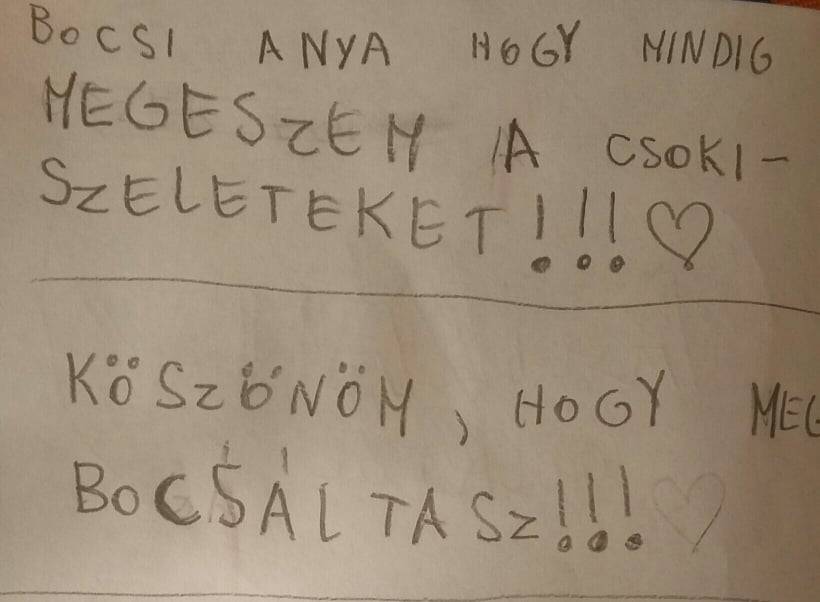 BOCSI ANYA HOGY MINDIG
MEGESZEM A CSOKI-
SZELETEKET!!!♡
KÖSZÖNÖM, HOGY MEG
BOCSÁLTASZ!!!♡